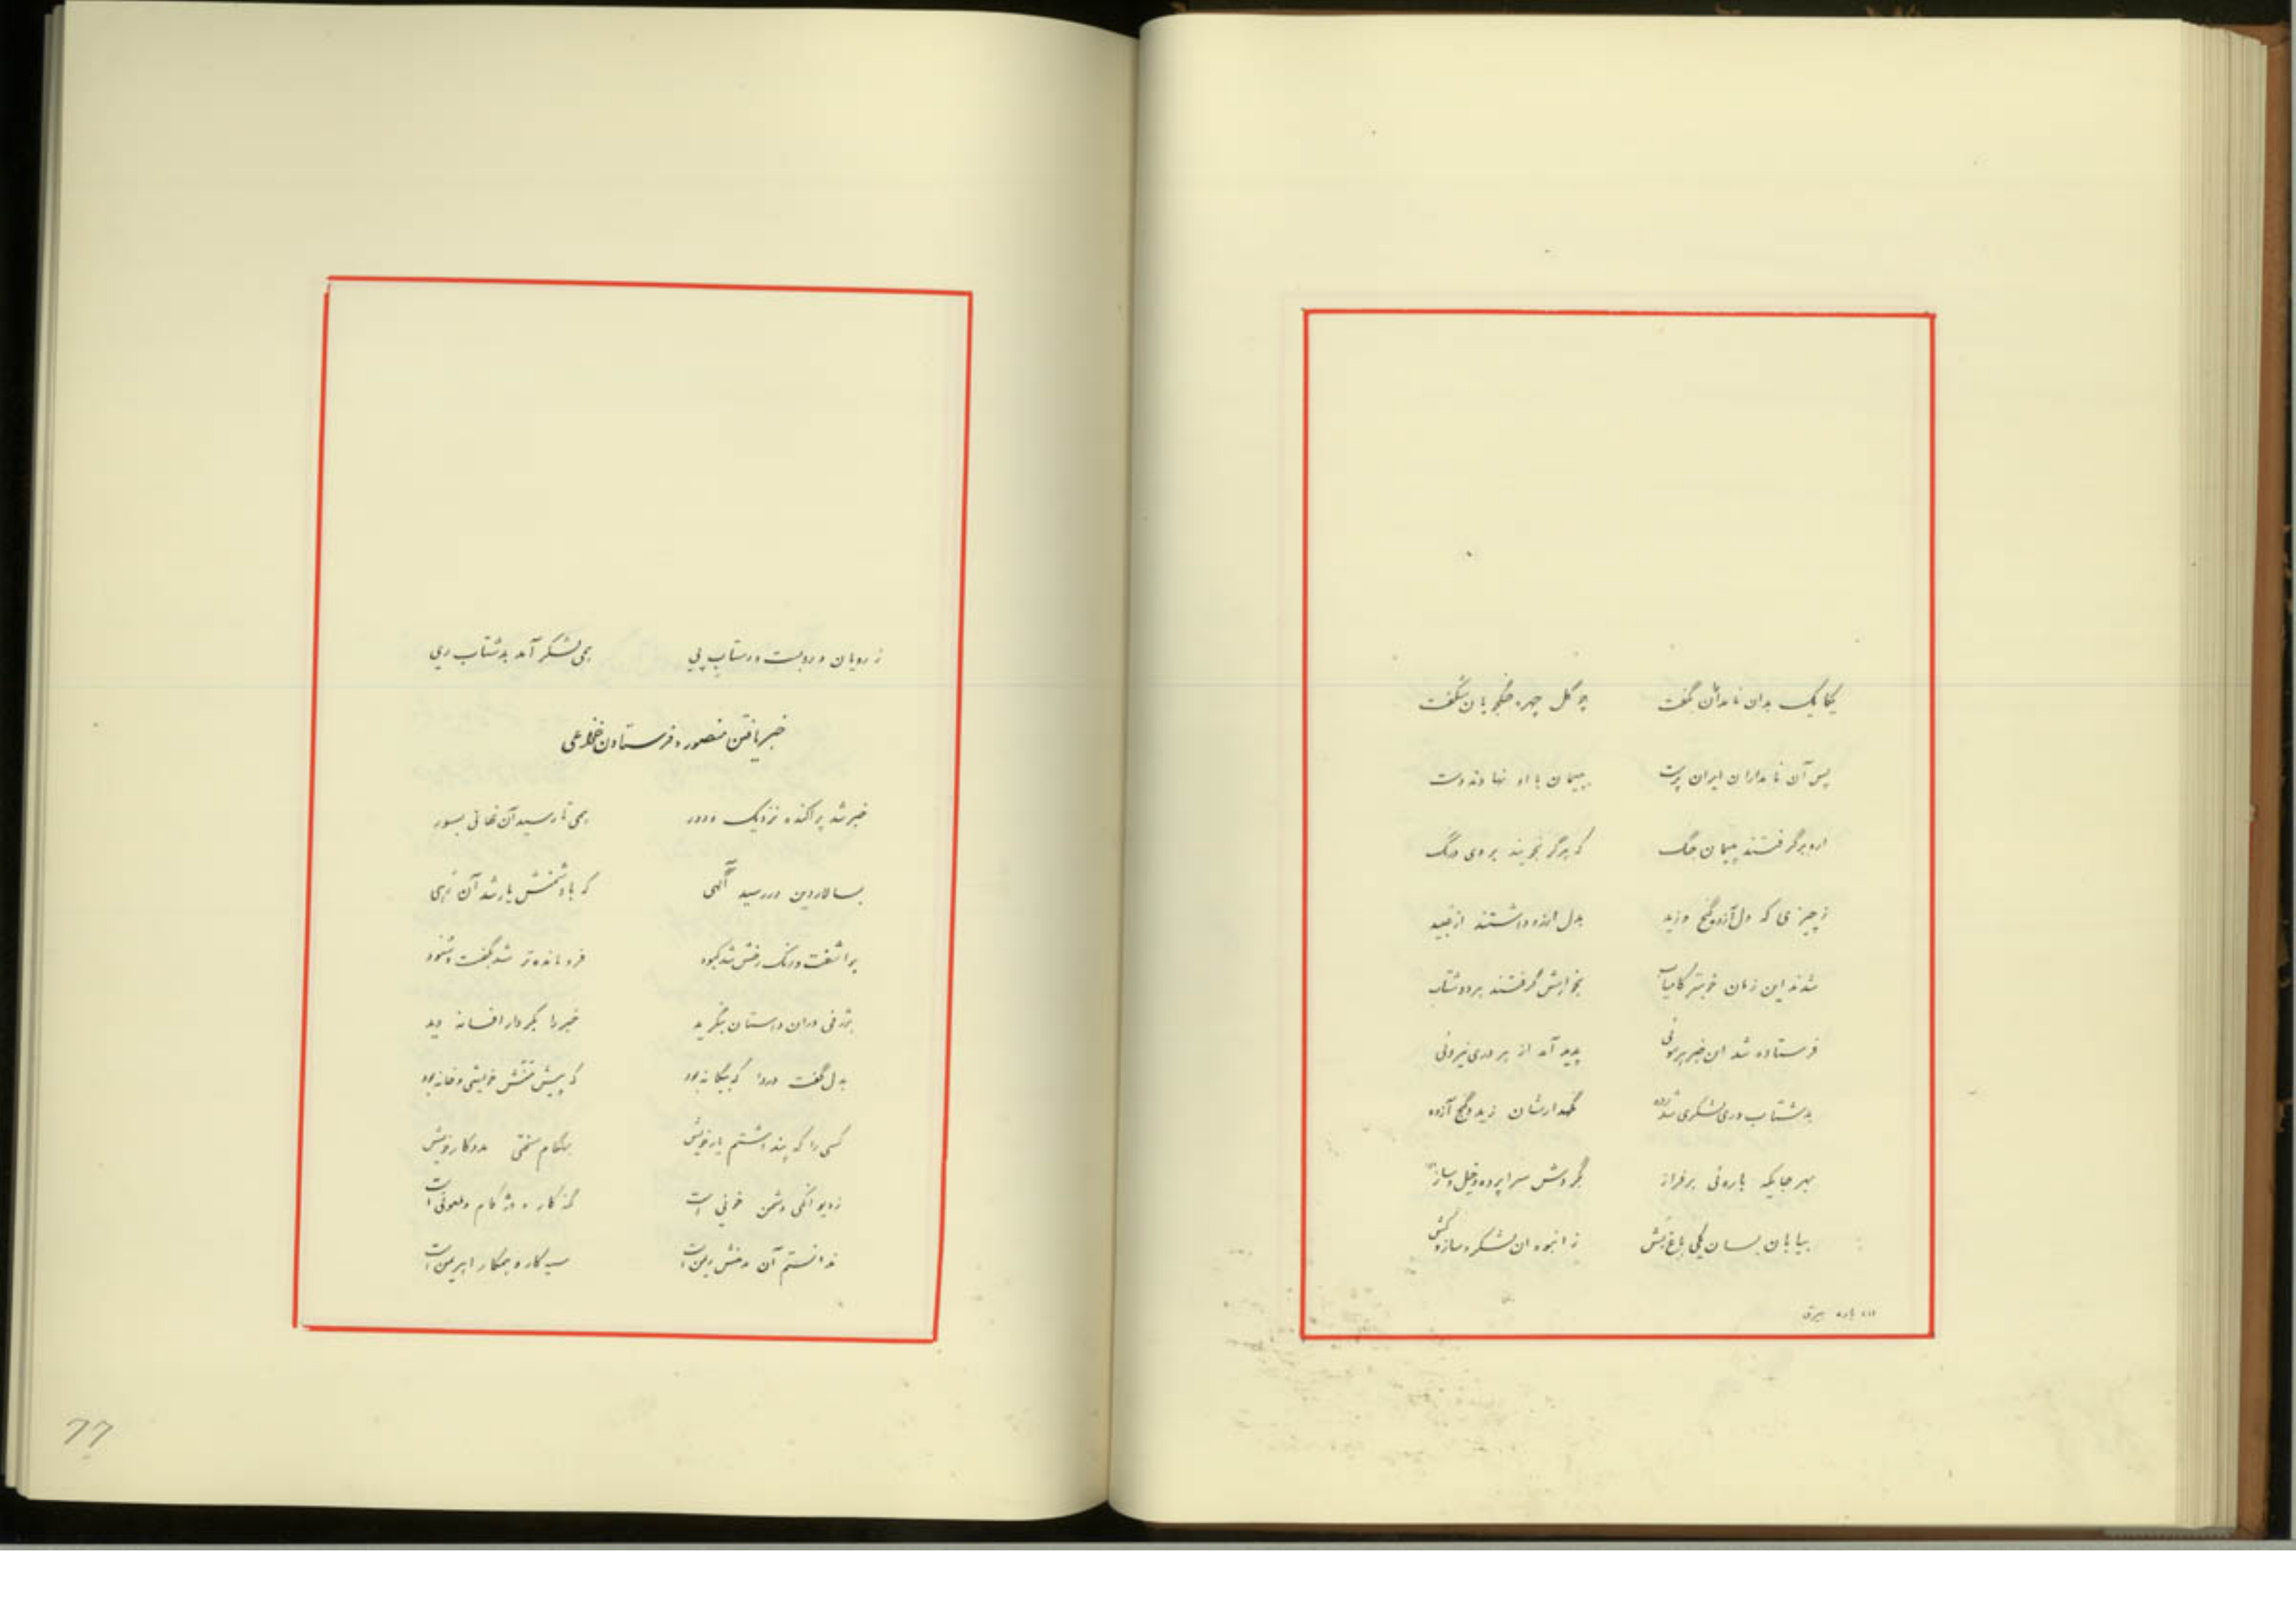 یکایک بدان نامداران گفت چو گل چهره جنگجویان شکفت
پس آن نامداران ایران پرست به پیمان با او نهادند دست
ازو برگرفتند پیمان جنگ که هرگز نجویند بروی درنگ
ز چیزی که دل آزدو گنج وزید بدل
شدند این زمان خوبتر کامیاب بخواهش گرفتند بر ره شتاب
فرستاده شد ان خبر پدید آمد از
بدشتاب وری لشکری شد نگهدارشان
بهر جایگه بارهٔ برفراز بگردش سراپرده و خیل و ساز
بیابان بسان یکی باغ بش ز انبوه ان لشکر و ساز وکش
باره بیرق
ز رویان و رودبست و رستاب پی همی لشکر آمد بدشتاب ری
خبر یافتن منصور و فرستادن
خبر شد پراکنده نزدیک و دور همی تا رسید آن
بسالار دین در رسید آگهی که با دشمنش یار شد آن رهی
براشفت و رنگ رخش شد کبود فرومانده‌تر شد بگفت و شنود
بژرفی دران داستان بنگرید خبر را بکردار افسانه دید
بدل گفت دردا که بیگانه بود که پیش منش خویشی و خانه بود
کسی را که پنداشتم یار خویش بهنگام سختی مددکار خویش
ز دیوانگی دشمن خونی است گنه کار و دژ کام و ملعونی است
ندانستم آن بدمنش ریمن است سیه کار و همکار اهریمن است
77